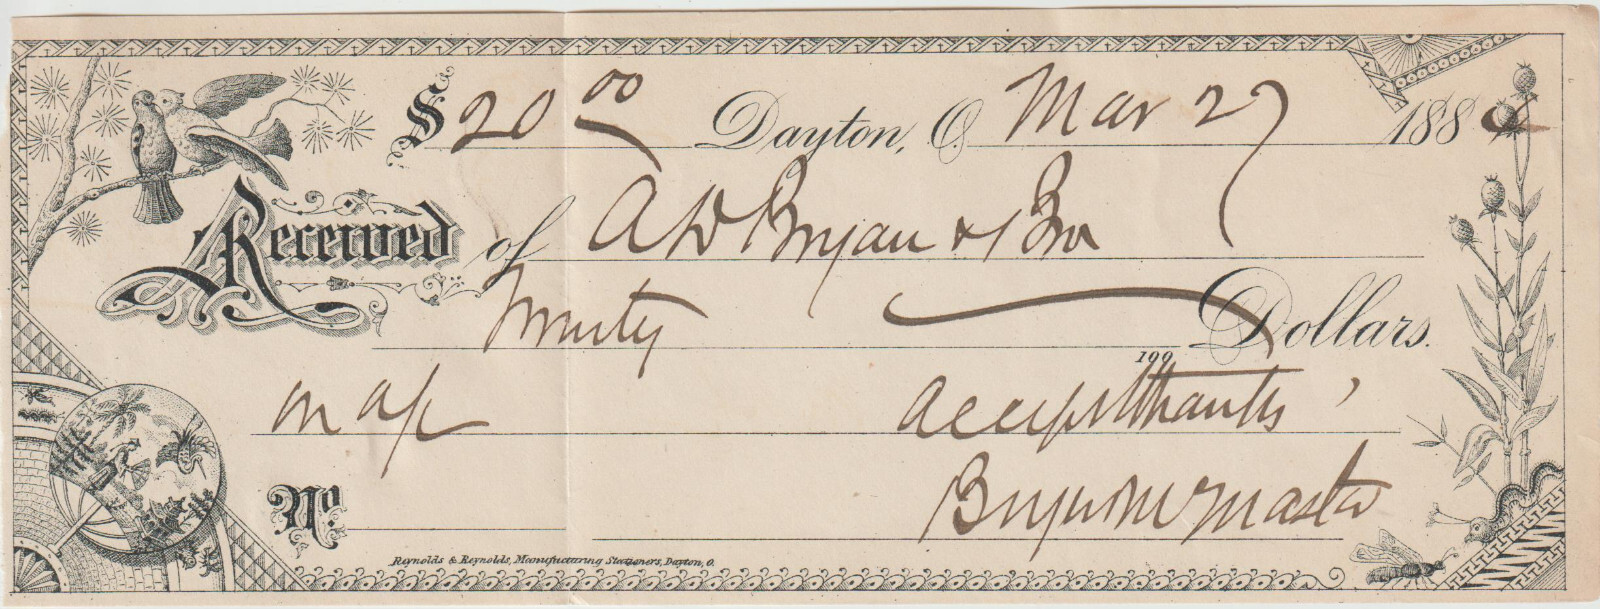 $ 20 00 Dayton, O. Mar 27 188
Received of A W Bryan & Bro
Twenty Dollars.
199
on a/c Accept thanks
No.
Reynolds & Reynolds, Manufacturing Stationers, Dayton, O.